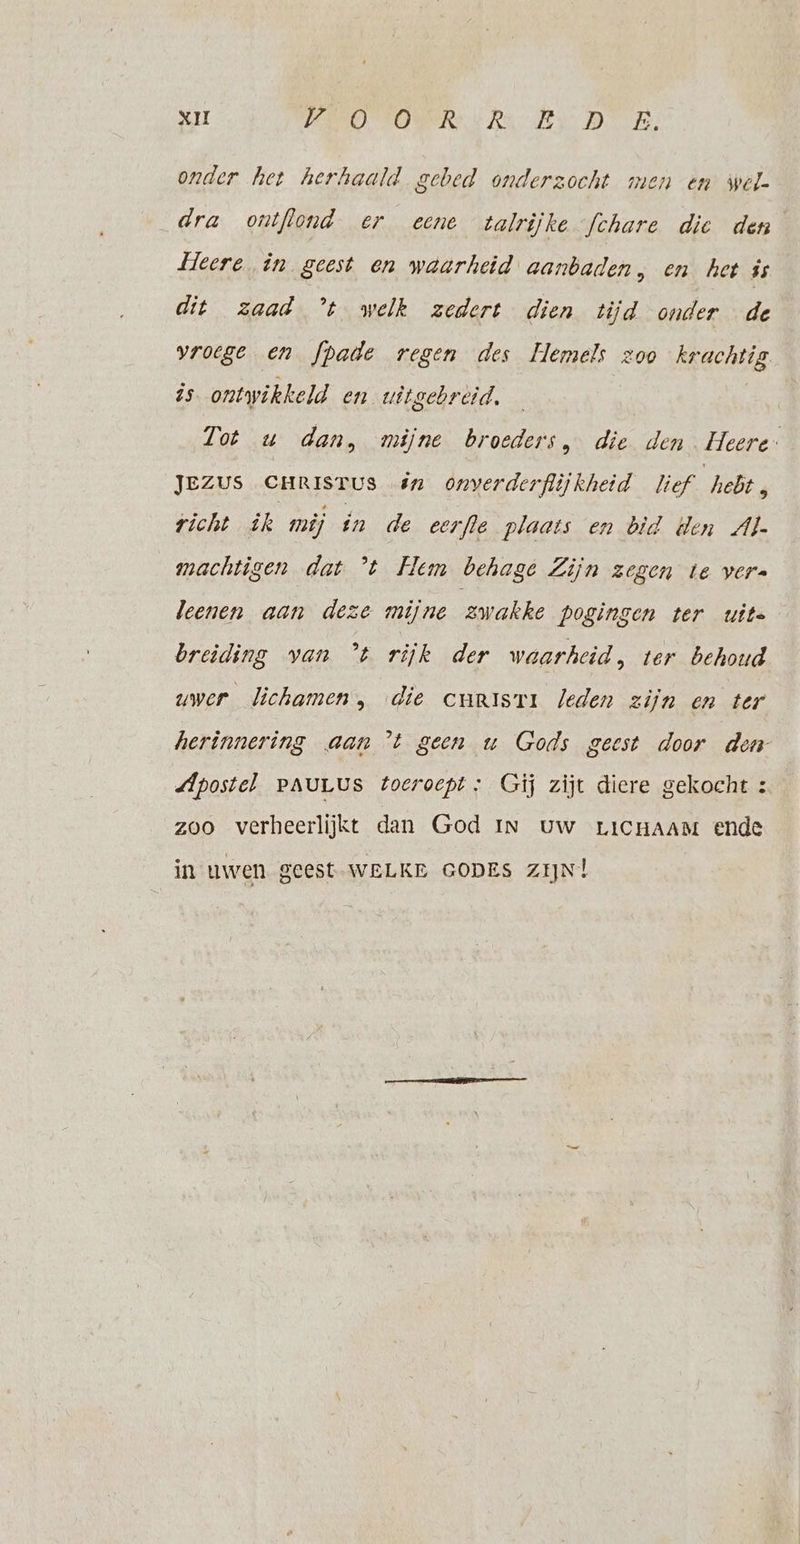 XII VOORREDE.
onder het herhaald gebed onderzocht men en wel-
dra ontſlond er eene talrijke ſchare die den
Heere in geest en waarheid aanbaden, en het is
dit zaad 't welk zedert dien tijd onder de
vroege en ſpade regen des Hemels zoo krachtig
is ontwikkeld en uitgebreid.
Tot u dan, mijne broeders, die den Heere
JEZUS CHRISTUS in onverderflijkheid lief hebt,
richt ik mij in de eerſle plaats en bid den Al-
machtigen dat 't Hem behage Zijn zegen te ver-
leenen aan deze mijne zwakke pogingen ter uit-
breiding van 't rijk der waarheid, ter behoud
uwer lichamen, die CHRISTI leden zijn en ter
herinnering aan 't geen u Gods geest door den
Apostel PAULUS toeroept: Gij zijt diere gekocht:
zoo verheerlijkt dan God IN UW LICHAAM ende
in uwen geest WELKE GODES ZIJN!